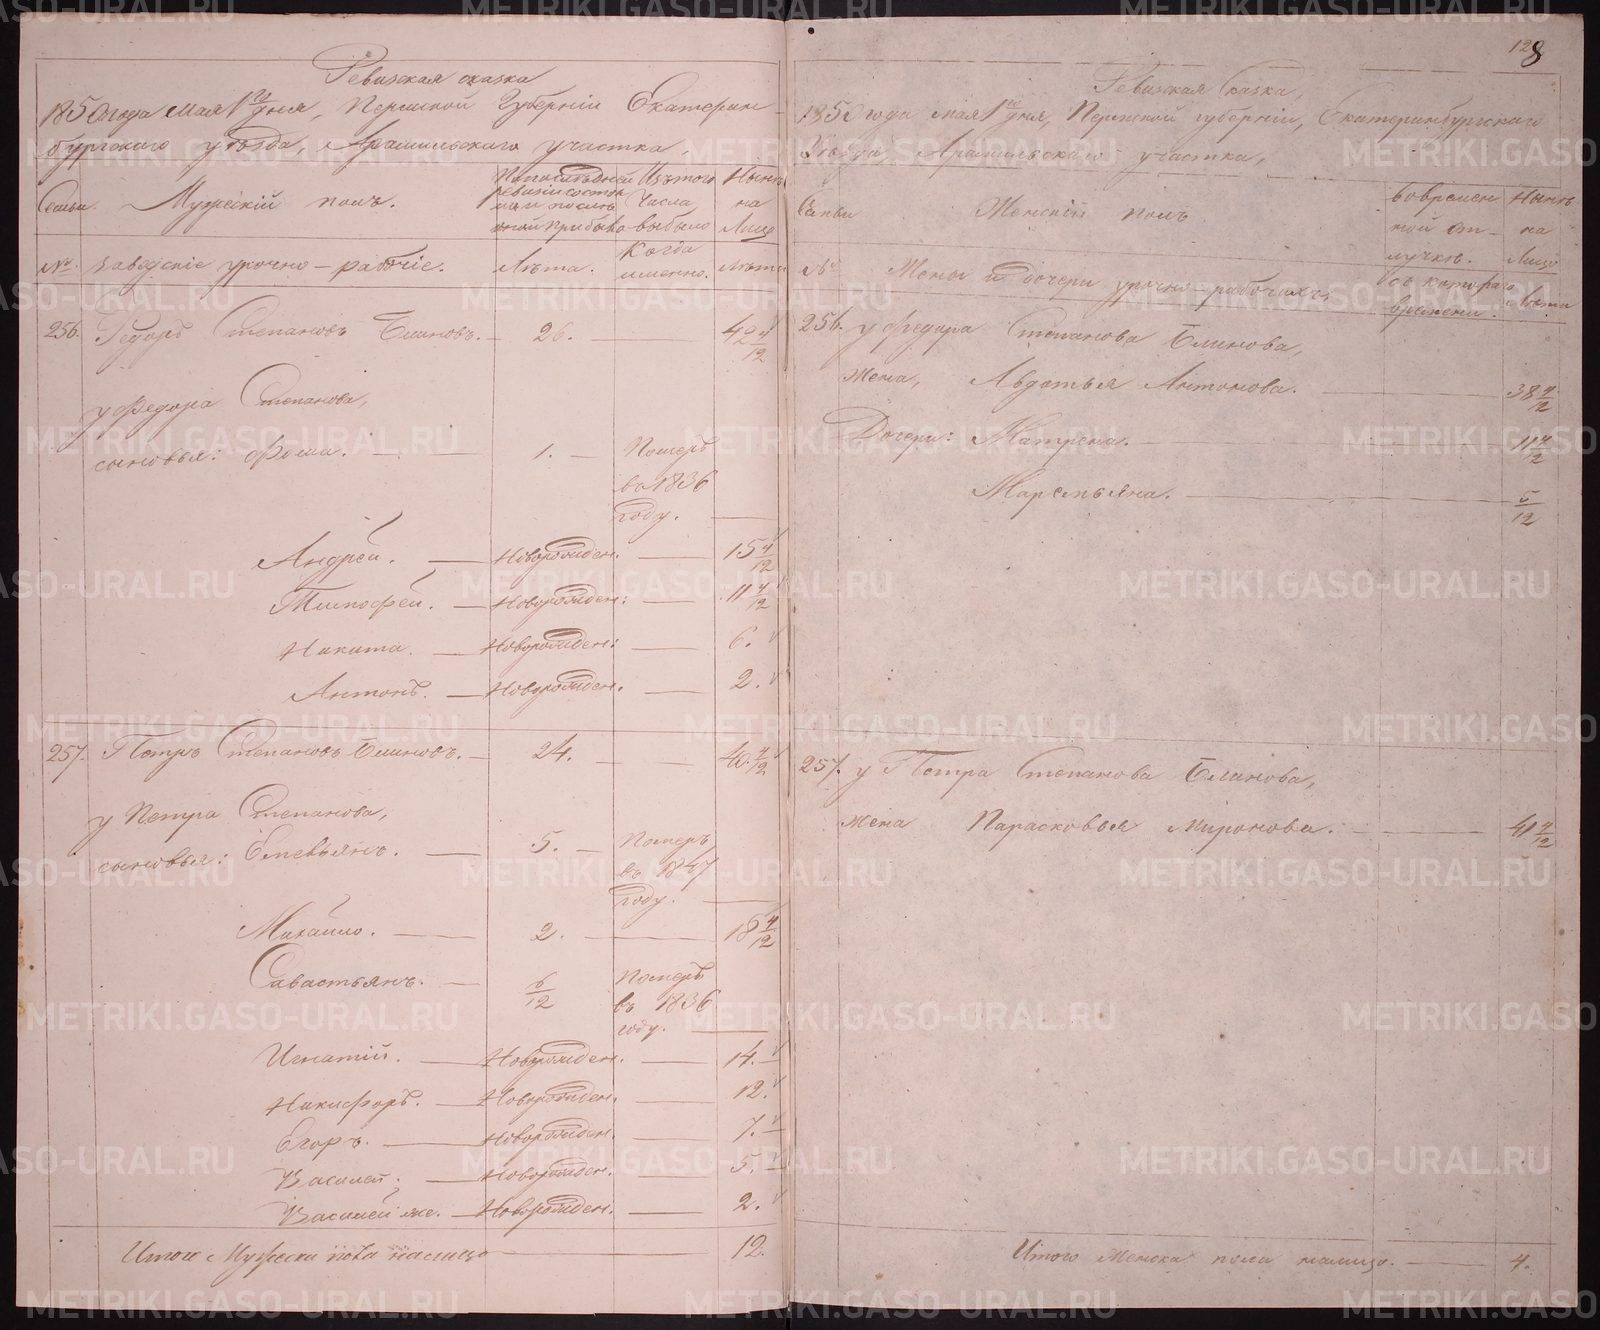 128
Ревизская сказка
1850 года мая 1го дня, Пермской Губернiи Екатерин-
бургскаго уѣзда, Арамильскаго участка,
Семьи.
Мужескiй полъ.
По последней ревизiи состояло и после оной прибыло
Изъ того числа выбыло
Нынѣ на лицо
№.
Заводскiе урочно-рабочiе.
Лѣта.
Когда именно.
Лѣта
256. Федоръ Степановъ Блиновъ. — 26. — 42 4/12
у Федора Степанова,
сыновья: Фома. — 1. — Померъ
въ 1836
году. —
Андрей. — Новорожден. — 15 4/12
Тимофей. — Новорожден: — 11 4/12
Никита. — Новорожден: — 6.
Антонъ. — Новорожден. — 2.
257. Петръ Степановъ Блиновъ. — 24. — 40 4/12
у Петра Степанова,
сыновья: Емельянъ. — 5. — Померъ
въ 1847
году. —
Михайло. — 2. — 18 4/12
Савастьянъ. — 6/12 Померъ
въ 1836
году. —
Игнатiй. — Новорожден. — 14.
Никифоръ. — Новорожден. — 12.
Егоръ. — Новорожден. — 7.
Василей. — Новорожден. — 5.
Василей же. — Новорожден. — 2.
Итого Мужеска пола налицо — 12.
Ревизская сказка,
1850 года мая 1го дня, Пермской губернiи, Екатеринбургскаго
Уѣзда, Арамильскаго участка,
Семьи
Женскiй полъ
Во временной отлучкѣ.
Нынѣ на лицо
№
Жены и дочери урочно-рабочихъ,
Съ котораго времени.
Лѣта
256. у Федора Степанова Блинова,
жена, Авдотья Антонова. — 38 4/12
Дочери: Матрена. — 11 4/12
Маремьяна. — 5/12
257. у Петра Степанова Блинова,
жена Парасковья Миронова. — 41 4/12
Итого Женска пола налицо. — 4.
METRIKI.GASO-URAL.RU